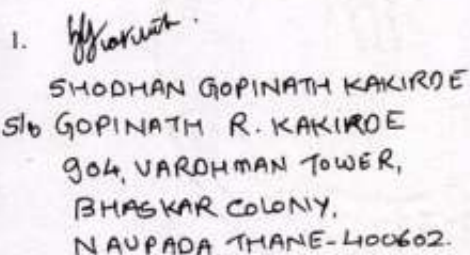 1.
SHODHAN GOPINATH KAKIRDE
S/o GOPINATH R. KAKIRDE
904, VARDHMAN TOWER,
BHASKAR COLONY,
NAUPADA THANE-400602.